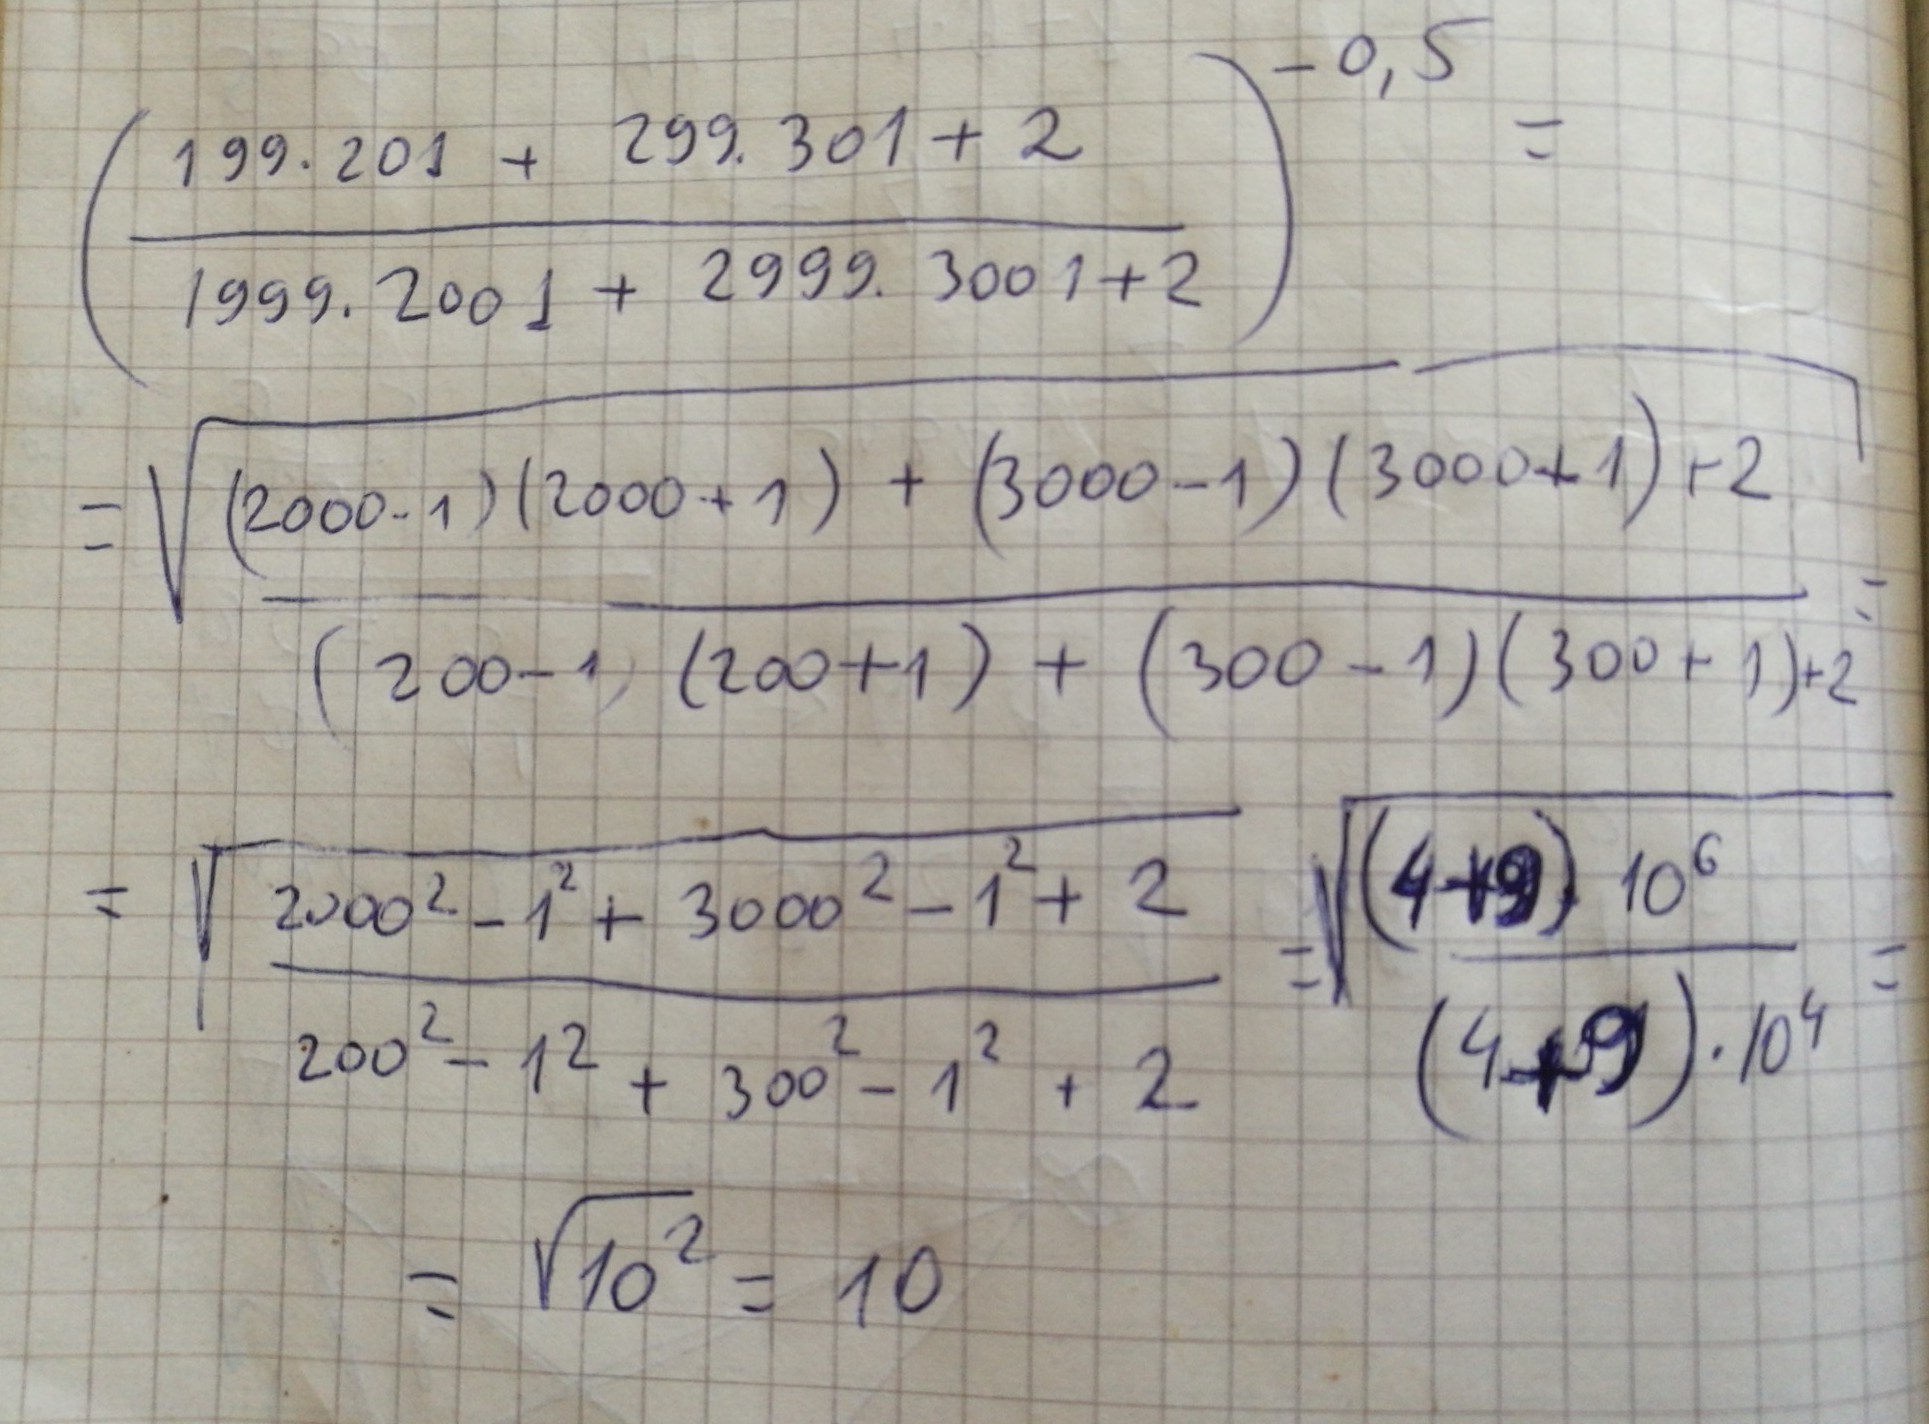 (199.201 + 299.301 + 2 / 1999.2001 + 2999.3001 + 2)^-0,5 =
= √((2000-1)(2000+1) + (3000-1)(3000+1)+2 / (200-1)(200+1) + (300-1)(300+1)+2) =
= √(2000² - 1² + 3000² - 1² + 2 / 200² - 1² + 300² - 1² + 2) = √((4+9) · 10⁶ / (4+9) · 10⁴) =
= √10² = 10